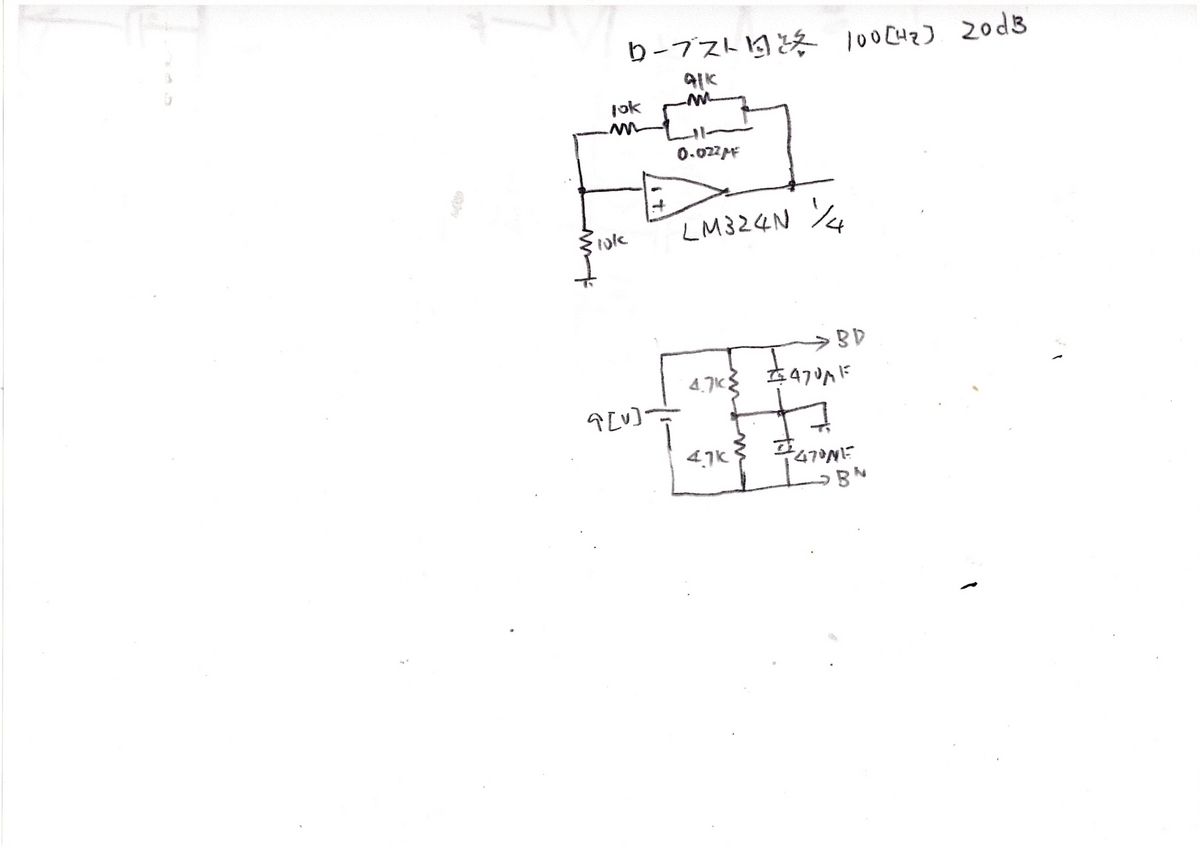 ローブスト回路 100[Hz] 20dB
91K
10k
0.022μF
-
+
LM324N 1/4
10k
BD
4.7K
470μF
9[V]
4.7K
470μF
BN